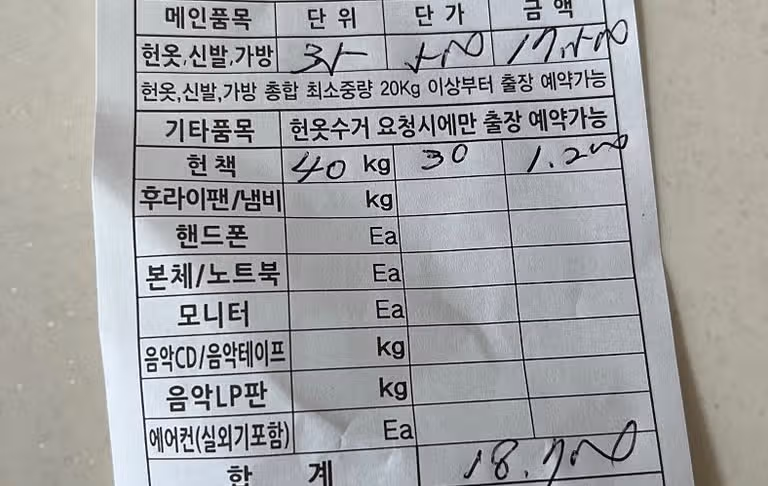 메인품목 단 위 단 가 금 액
헌옷,신발,가방 35 500 17.500
헌옷,신발,가방 총합 최소중량 20Kg 이상부터 출장 예약가능
기타품목 헌옷수거 요청시에만 출장 예약가능
헌 책 40 kg 30 1.200
후라이팬/냄비 kg
핸드폰 Ea
본체/노트북 Ea
모니터 Ea
음악CD/음악테이프 kg
음악LP판 kg
에어컨(실외기포함) Ea
합 계 18.700